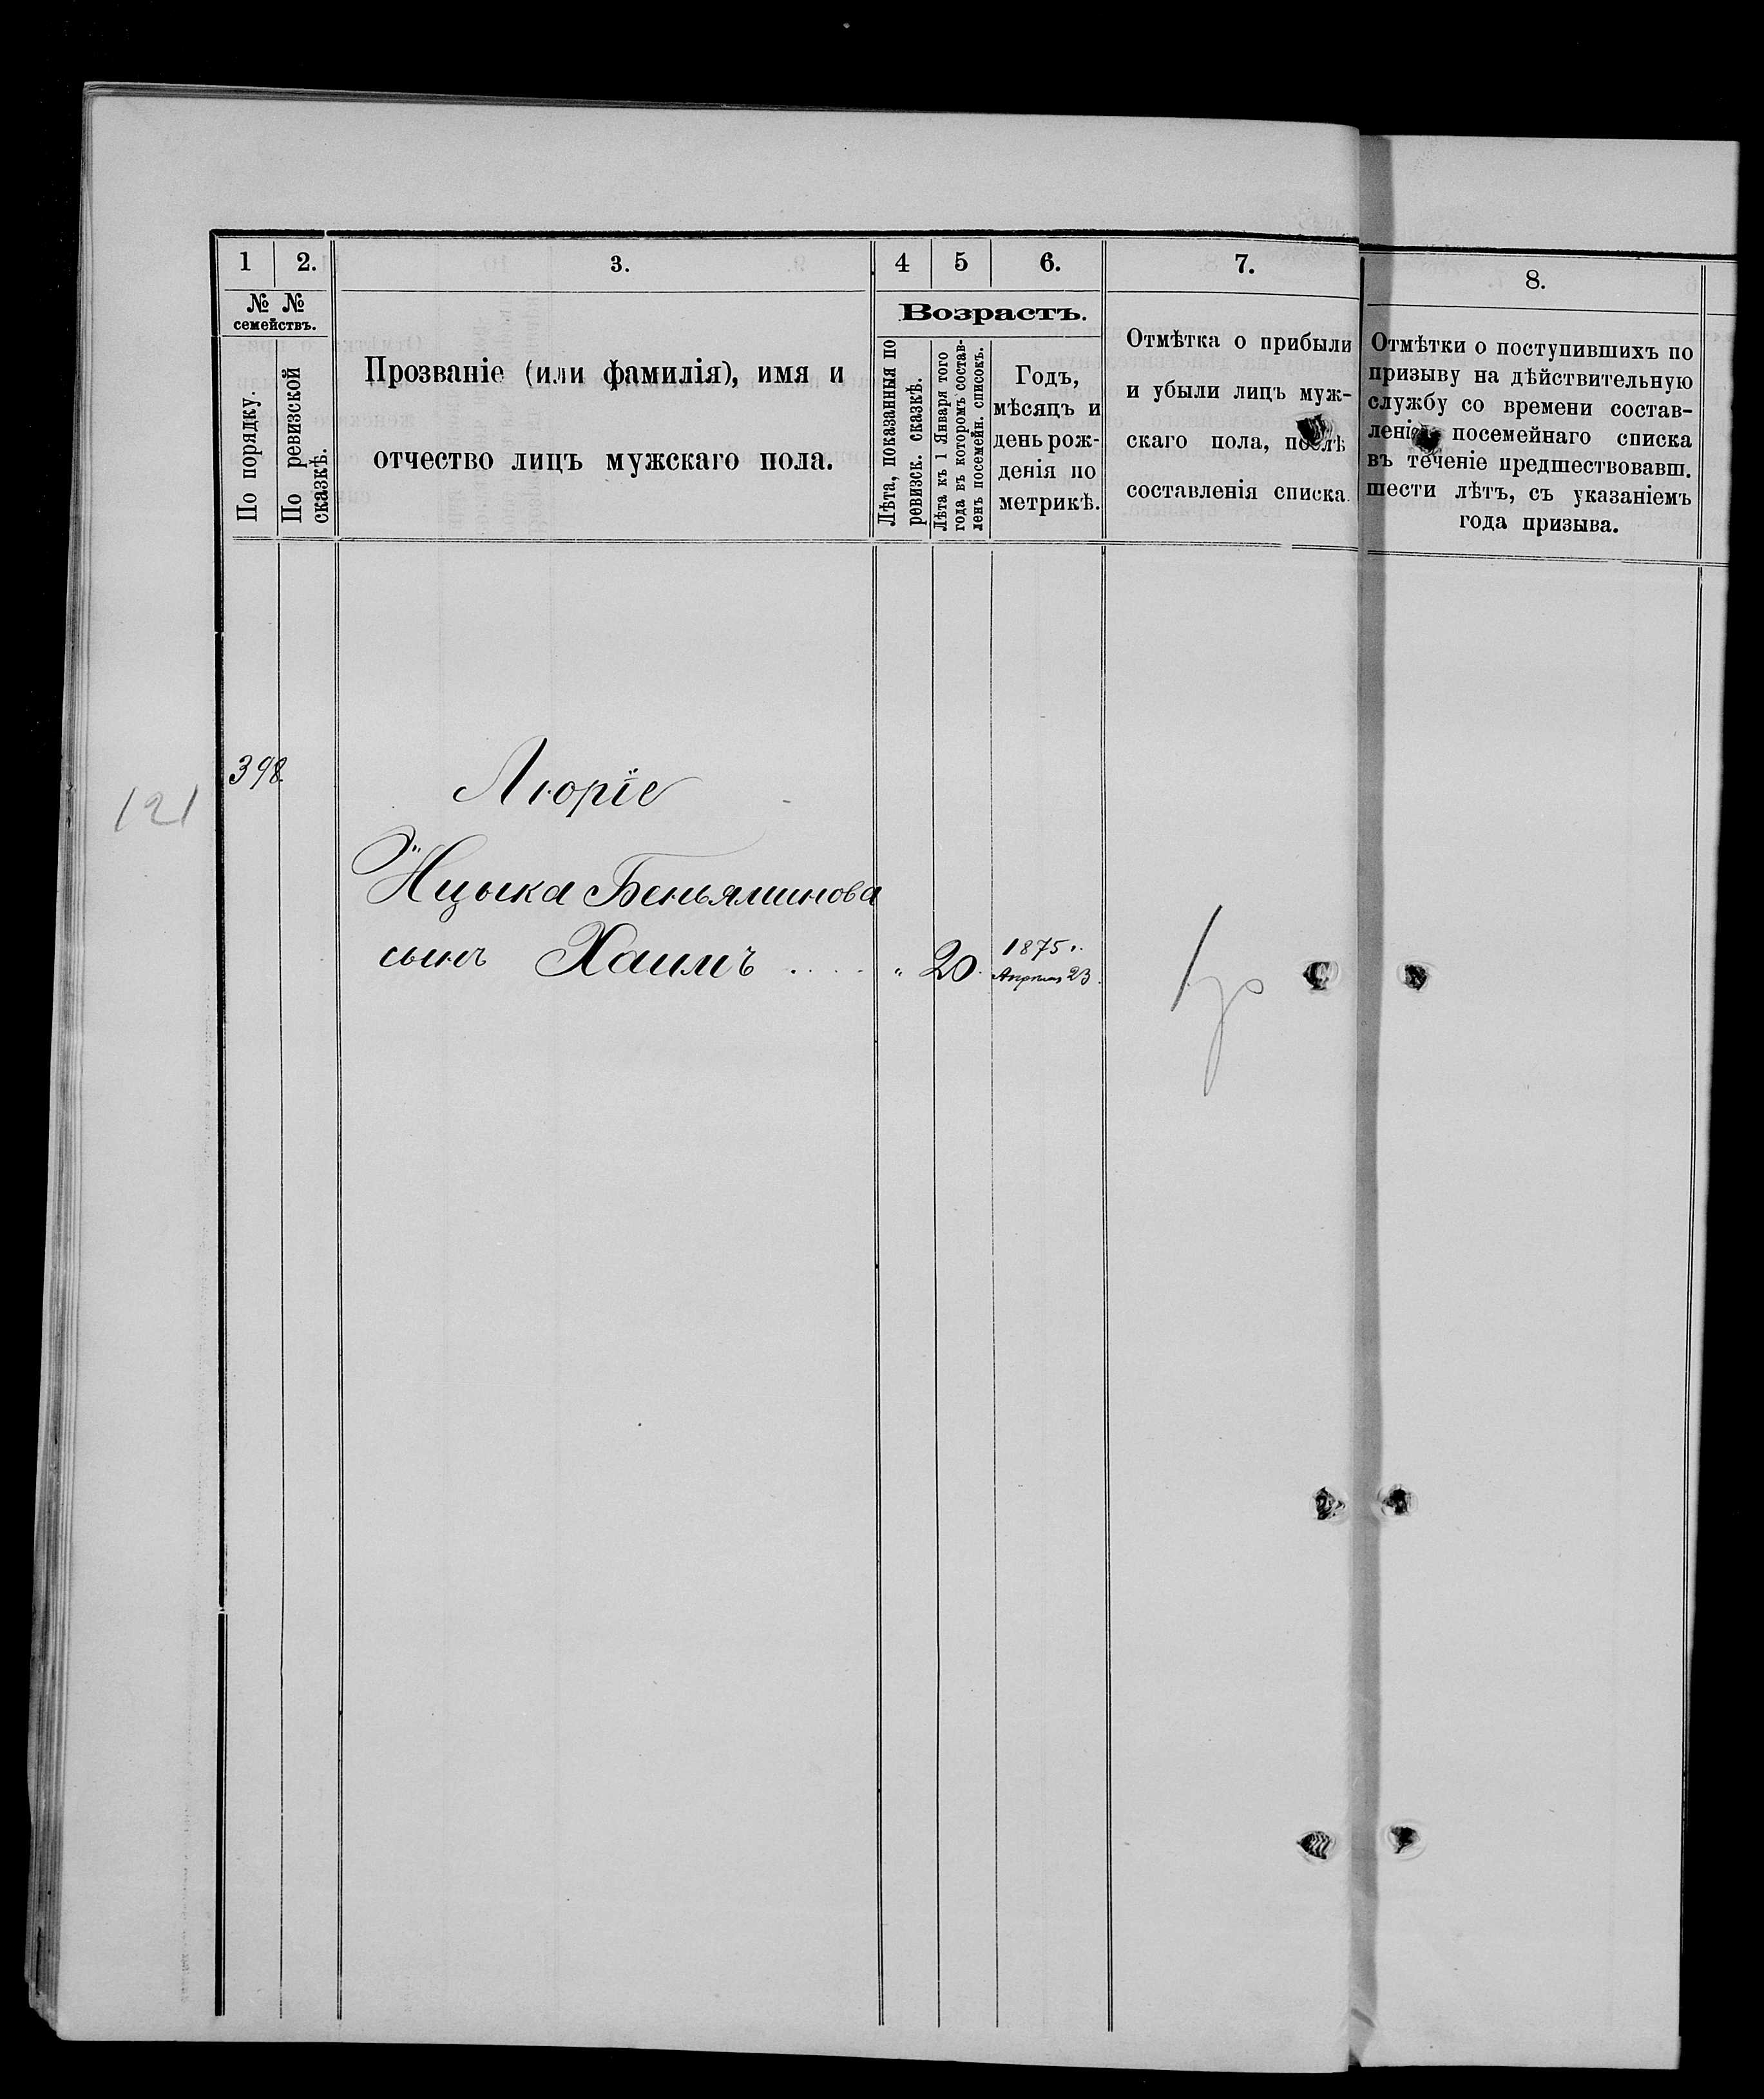 1
2.
3.
4
5
6.
7.
8.
№ №
семействъ.
По порядку.
По ревизской
сказкѣ.
Прозваніе (или фамилія), имя и
отчество лицъ мужскаго пола.
Возрастъ.
Лѣта, показанныя по
ревизск. сказкѣ.
Лѣта къ 1 Января того
года въ которомъ состав-
ленъ посемейн. списокъ.
Годъ,
мѣсяцъ и
день рож-
денія по
метрикѣ.
Отмѣтка о прибыли
и убыли лицъ муж-
скаго пола, послѣ
составленія списка.
Отмѣтки о поступившихъ по
призыву на дѣйствительную
службу со времени состав-
ленія посемейнаго списка
въ теченіе предшествовавш.
шести лѣтъ, съ указаніемъ
года призыва.
121
398.
Люріе
Ицыка Беньяминова
сынъ Хаимъ . . . . . " 20. 1875 г.
Апрѣля 23.